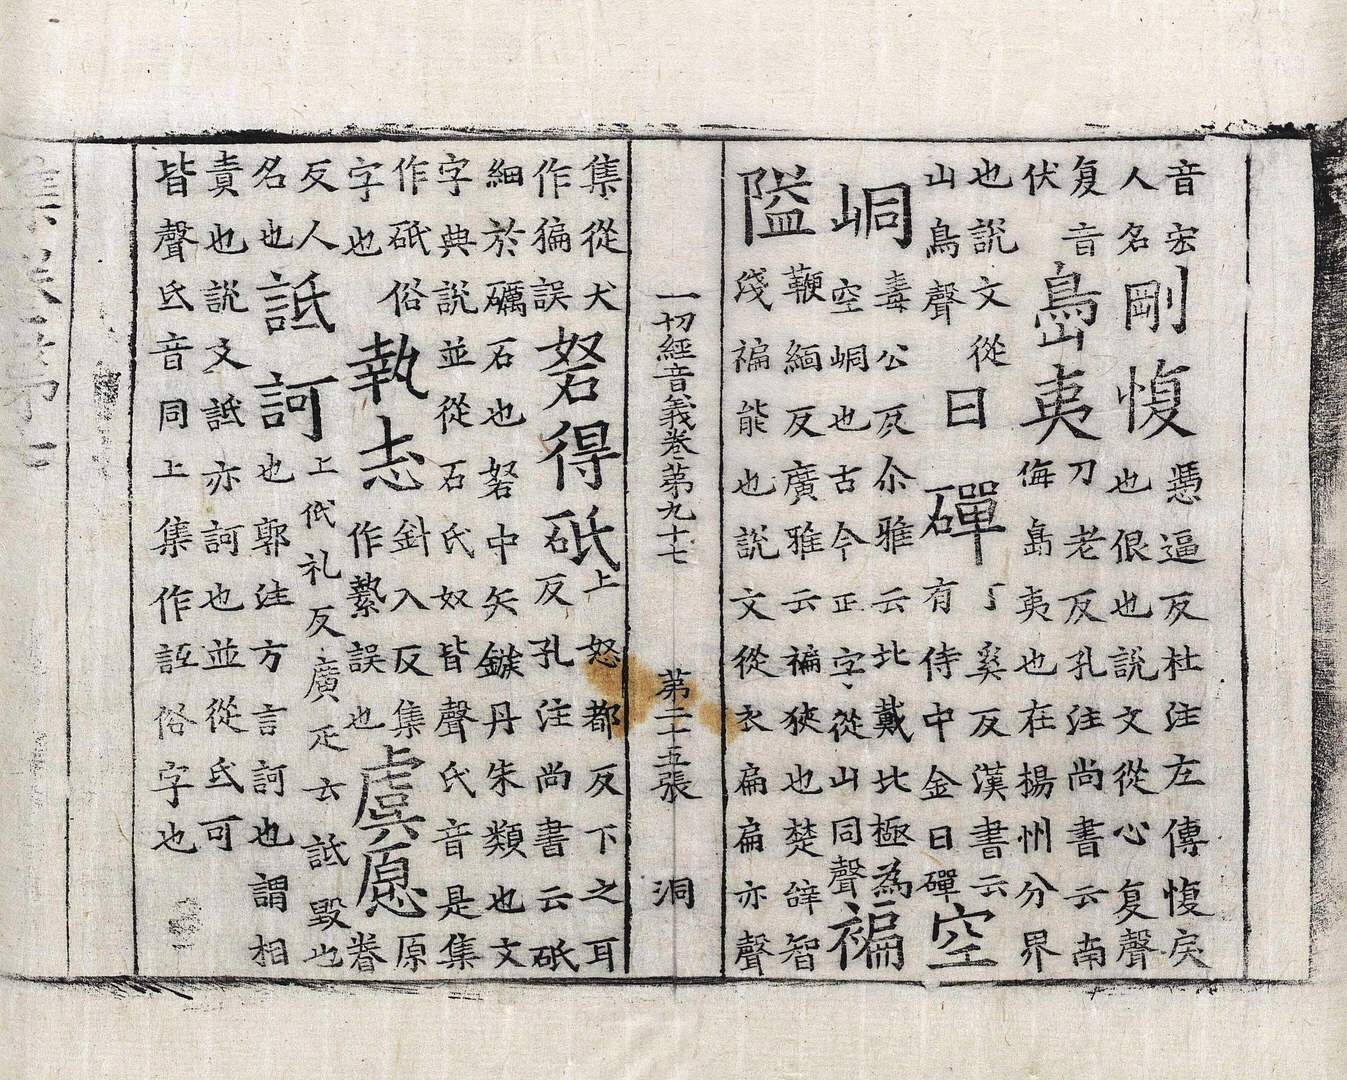 音宏
人名
剛愎
憑逼反杜注左傳愎戾
也佷也說文從心复聲
复音
伏
嶌夷
刀老反孔注尚書云南
海島夷也在揚州分界
也說文從
山鳥聲
日磾
丁奚反漢書云
有侍中金日磾
空
峒
毒公反尒雅云北戴北極為
空峒也古今正字從山同聲
褊
隘
鞭緬反廣雅云褊狹也楚辝智
淺褊能也說文從衣扁扁亦聲
一切經音義卷第九十七 第二十五張 洞
集從犬
作猵誤
砮得砥
上怒都反下之耳
反孔注尚書云砥
細於礪石也砮中矢鏃丹朱類也文
字典說並從石氐奴皆聲氐音是集
作砥俗
字也
執志
針入反集
作縶誤也
虞愿
原
卷
反人
名也
詆訶
上低礼反廣疋云詆毀也
也郭注方言訶也謂相
責也說文詆亦訶也並從氐可
皆聲氐音同上集作詆俗字也